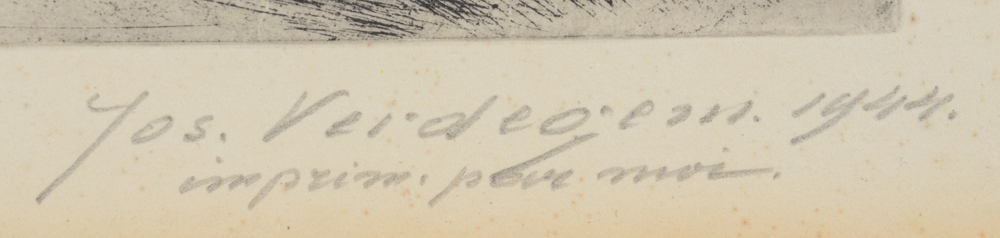 Jos. Verdegem. 1944.
imprim. par moi.